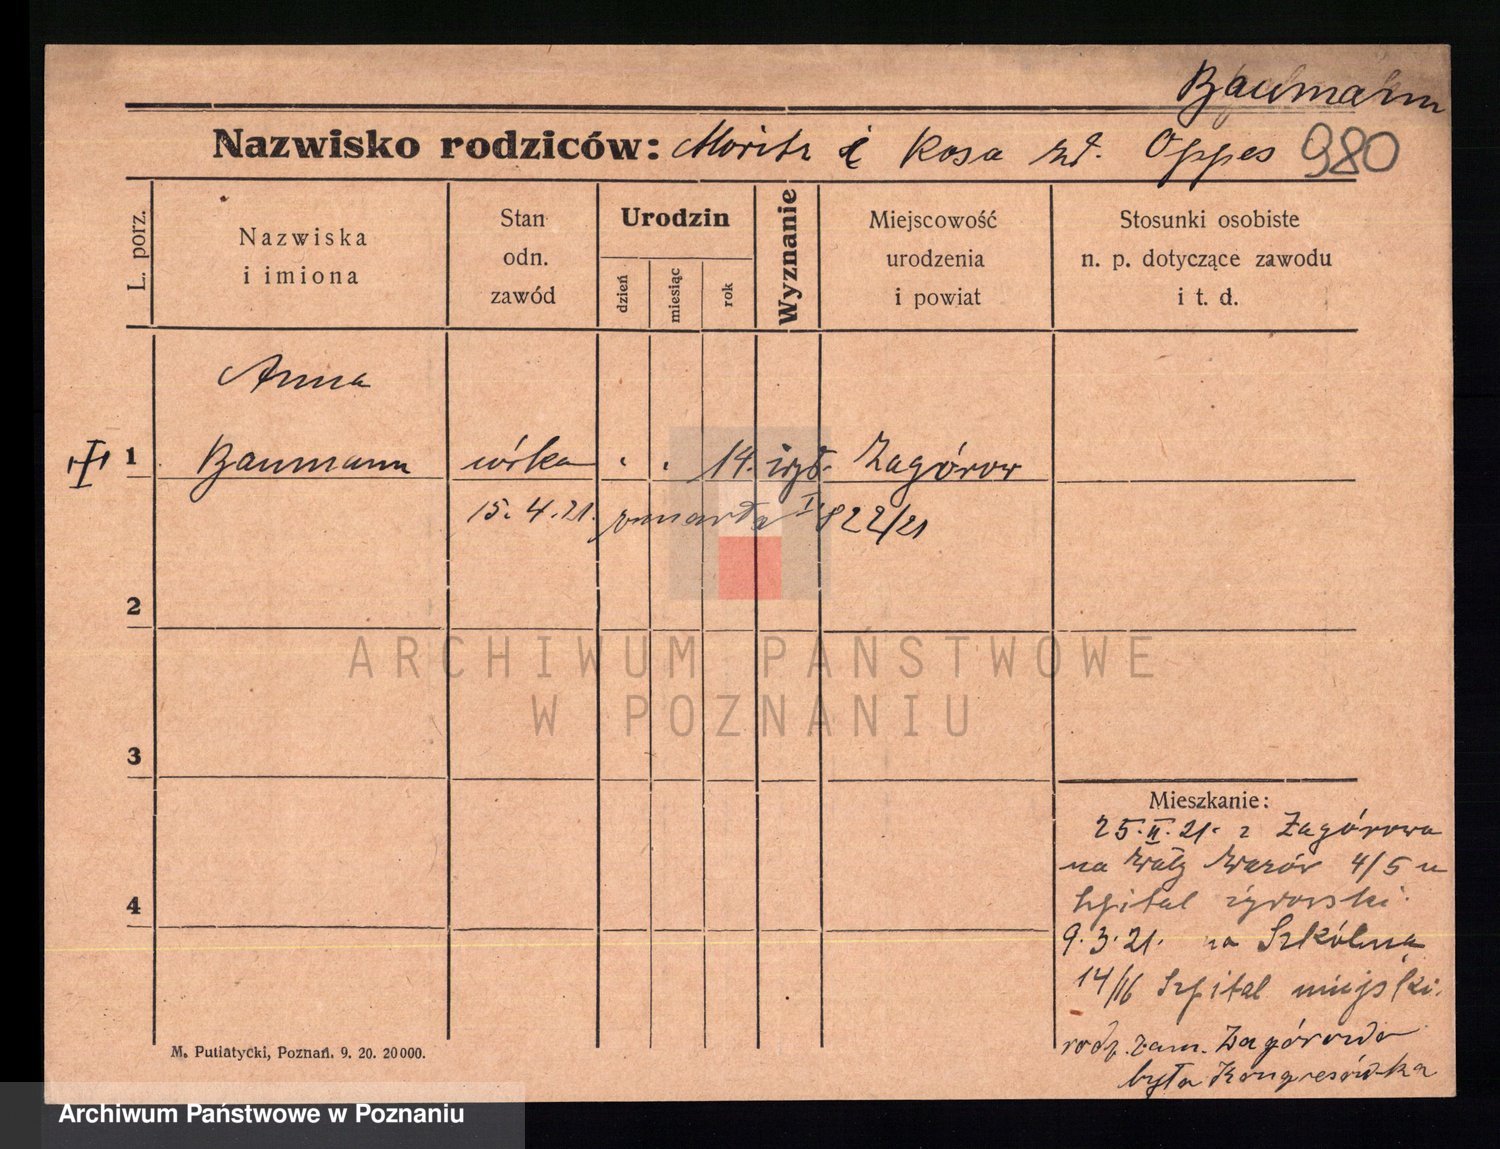 Baumann
Nazwisko rodziców: Moritz i Rosa zd. Oppes 980
L. porz.
Nazwiska
i imiona
Stan
odn.
zawód
Urodzin
dzień
miesiąc
rok
Wyznanie
Miejscowość
urodzenia
i powiat
Stosunki osobiste
n. p. dotyczące zawodu
i t. d.
Anna
1 Baumann córka 14. izr. Zagórow
15. 4. 21. zmarła I 822/21
2
3
4
Mieszkanie:
25. II. 21. z Zagórowa
na Wały Wazów 4/5 u
szpital żydowski.
9. 3. 21. na Szkólną
14/16 Szpital miejski.
rodz. zam. Zagórowo
była Kongresówka
M. Putiatycki, Poznań. 9. 20. 20000.
ARCHIWUM PAŃSTWOWE
W POZNANIU
Archiwum Państwowe w Poznaniu